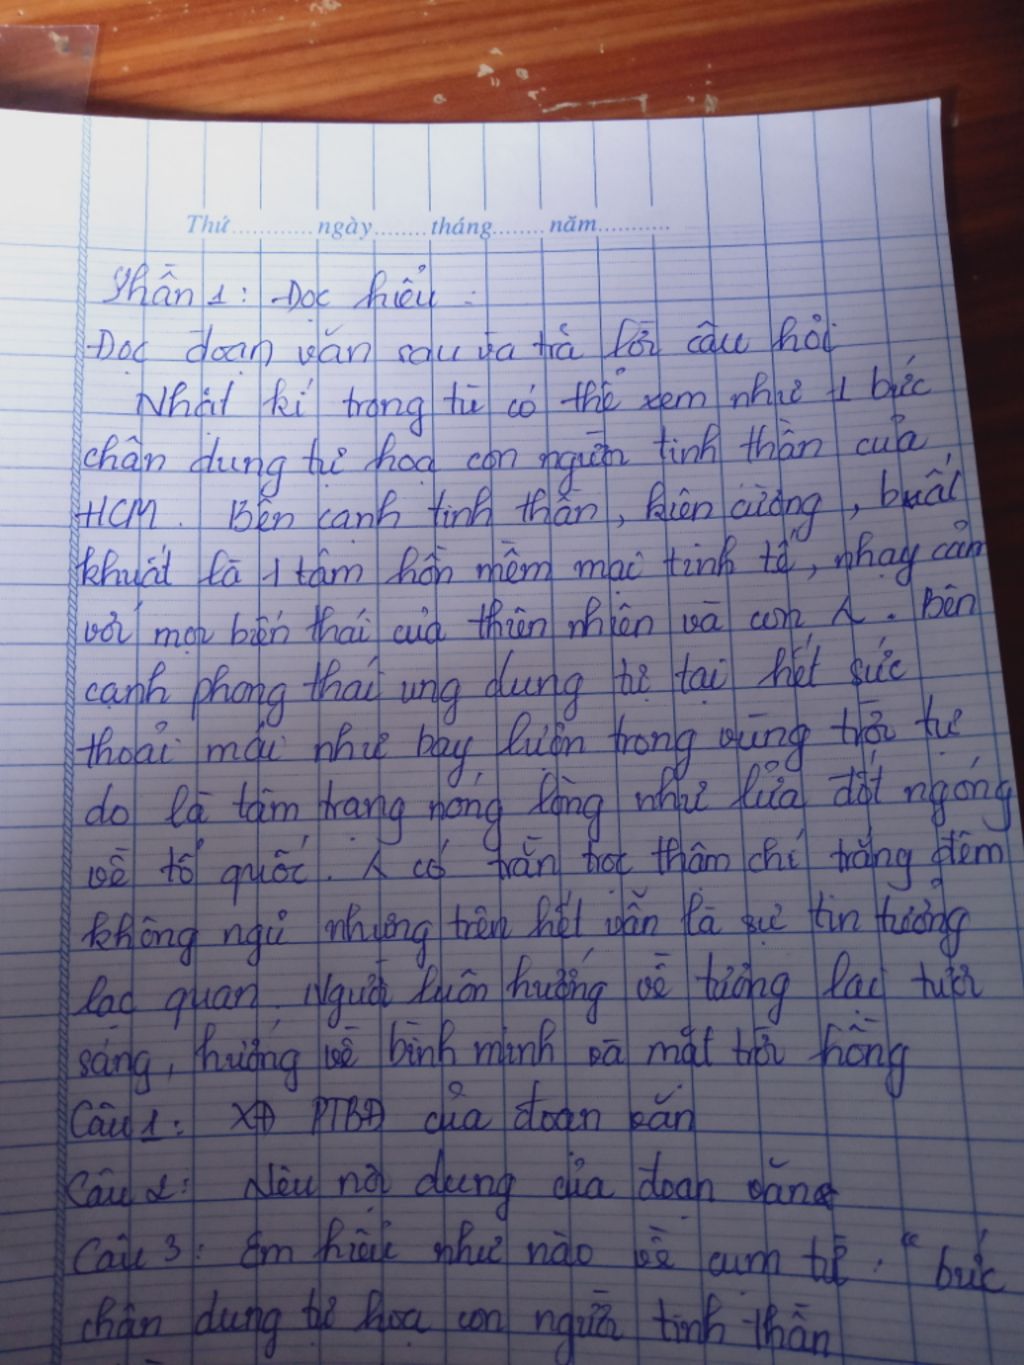 Thứ............ngày........tháng........năm...........
Phần 1: Đọc hiểu :
Đọc đoạn văn sau và trả lời câu hỏi
Nhật kí trong tù có thể xem như 1 bức
chân dung tự hoạ con người tinh thần của
HCM. Bên cạnh tinh thần, kiên cường, bất
khuất là 1 tâm hồn mềm mại tinh tế, nhạy cảm
với mọi biến thái của thiên nhiên và con . Bên
cạnh phong thái ung dung tự tại hết sức
thoải mái như bay lượn trong vùng trời tự
do là tâm trạng nóng lòng như lửa đốt ngóng
về tổ quốc. có trằn trọc thâm chí trắng đêm
không ngủ nhưng trên hết vẫn là sự tin tưởng
lạc quan. Người luôn hướng về tương lai tươi
sáng, hướng về bình minh và mặt trời hồng
Câu 1: XĐ PTBĐ của đoạn văn
Câu 2: Nêu nội dung của đoạn văn
Câu 3: Em hiểu như nào về cụm từ : "bức
chân dung tự hoạ con người tinh thần